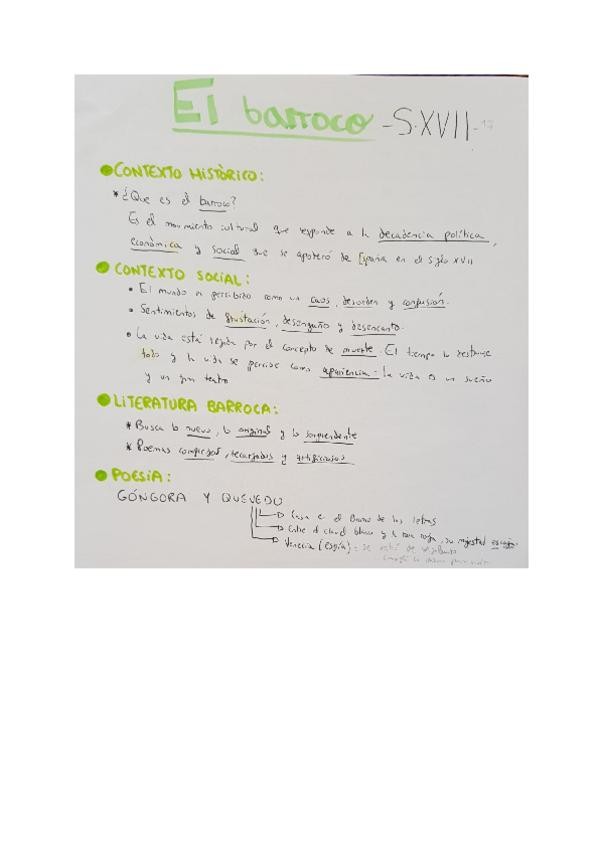 El barroco - S.XVII - 17
CONTEXTO HISTÒRICO:
* ¿Que es el barroco?
Es el movimiento cultural que responde a la decadencia política,
económica y social que se apoteró de España en el siglo XVII
CONTEXTO SOCIAL:
• El mundo es percibido como un caos, desorden y confusión.
• Sentimientos de frustación, desengaño y desencanto.
• La vida está regida por el concepto de muerte. El tiempo lo destruye
todo y la vida se percibe como apariencia: la vida es un sueño
y un gran teatro
LITERATURA BARROCA:
* Busca lo nuevo, lo original y lo sorprendente
* Poemas complejos, recargados y artificiosos
POESIA:
GÓNGORA Y QUEVEDO
→ Casa en el Barrio de las letras
→ Entre el clavel blanco y la rosa roja, su majestad escoja.
→ Venecia (espía): se está de